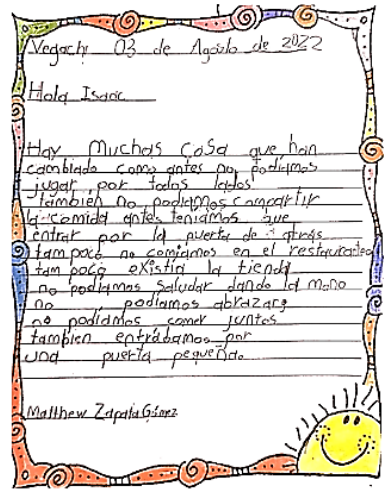 Vegachi 03 de Agosto de 2022
Hola Isaac
Hay muchas cosa que han
cambiado como antes no podiamos
jugar por todos lados
tambien no podiamos compartir
la comida antes teniamos que
entrar por la puerta de atrás
tampoco no comiamos en el restaurante
tam poco existia la tienda
no podiamos saludar dando la mano
no podiamos abrazar
no podiamos comer juntos
tambien entrabamos por
una puerta pequeña
Matthew Zapata Gómez